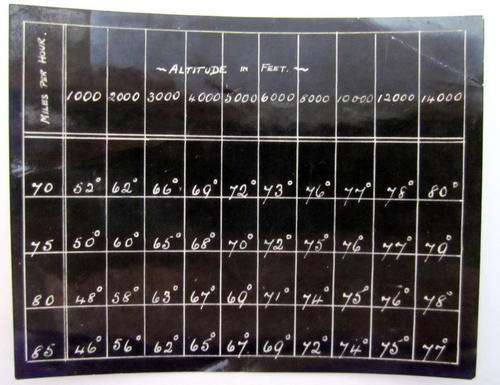 ~ ALTITUDE IN FEET. ~
MILES PER HOUR.
1000 2000 3000 4000 5000 6000 8000 10000 12000 14000
70 52° 62° 66° 69° 72° 73° 76° 77° 78° 80°
75 50° 60° 65° 68° 70° 72° 75° 76° 77° 79°
80 48° 58° 63° 67° 69° 71° 74° 75° 76° 78°
85 46° 56° 62° 65° 67° 69° 72° 74° 75° 77°